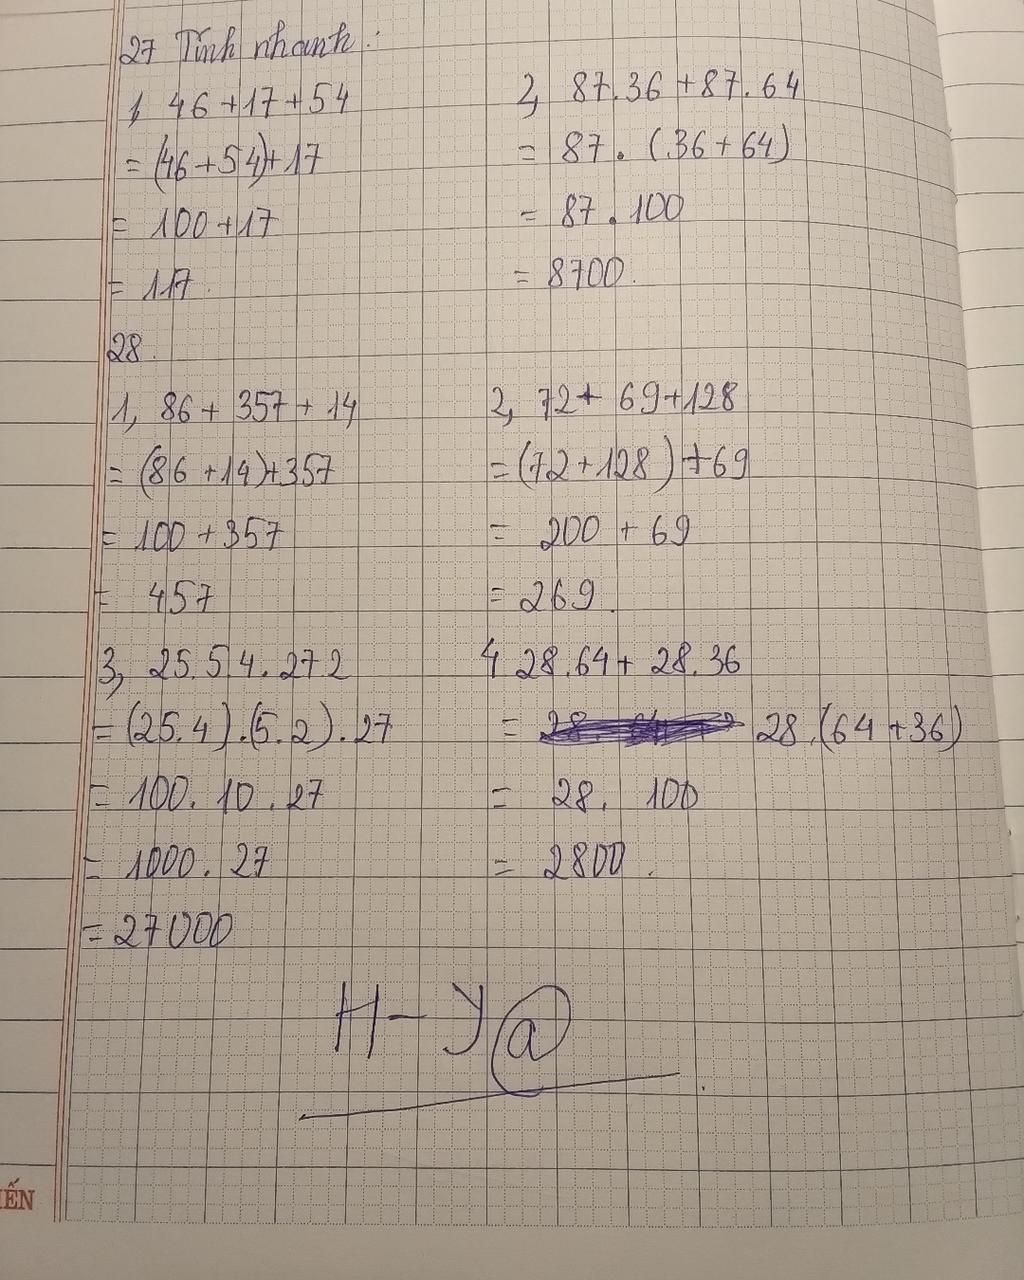 27 Tính nhanh:
1, 46+17+54
= (46+54)+17
= 100+17
= 117.
2, 87.36+87.64
= 87.(36+64)
= 87.100
= 8700.
28.
1, 86+357+14
= (86+14)+357
= 100+357
= 457
2, 72+69+128
= (72+128)+69
= 200+69
= 269.
3, 25.5.4.27 2
= (25.4).(5.2).27
= 100.10.27
= 1000.27
= 27000
4 28.64+28.36
= 28.(64+36)
= 28.100
= 2800.
ẾN